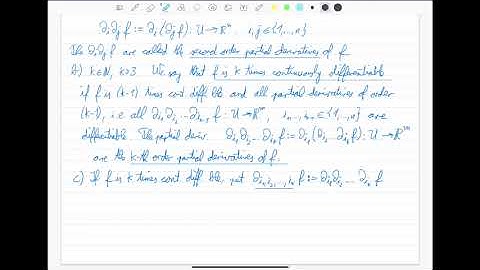 ∂ᵢ∂ⱼf := ∂ᵢ(∂ⱼf): U → ℝᵐ, i,j ∈ {1,...,n}
The ∂ᵢ∂ⱼf are called the second order partial derivatives of f.
b) k∈ℕ, k≥3 We say that f is k times continuously differentiable
if f is (k-1) times cont. diff'ble and all partial derivatives of order
(k-1), i.e. all ∂_{i₁}∂_{i₂}...∂_{i_{k-1}} f: U → ℝᵐ, i₁,...,i_{k-1} ∈ {1,...,n} are
differentiable. The partial deriv. ∂_{i₁}∂_{i₂}...∂_{i_k} f := ∂_{i₁}(∂_{i₂}...∂_{i_k} f): U → ℝᵐ
are the k-th order partial derivatives of f.
c) If f is k times cont. diff'ble, put ∂_{i₁,i₂,...,i_k} f := ∂_{i₁}∂_{i₂}...∂_{i_k} f